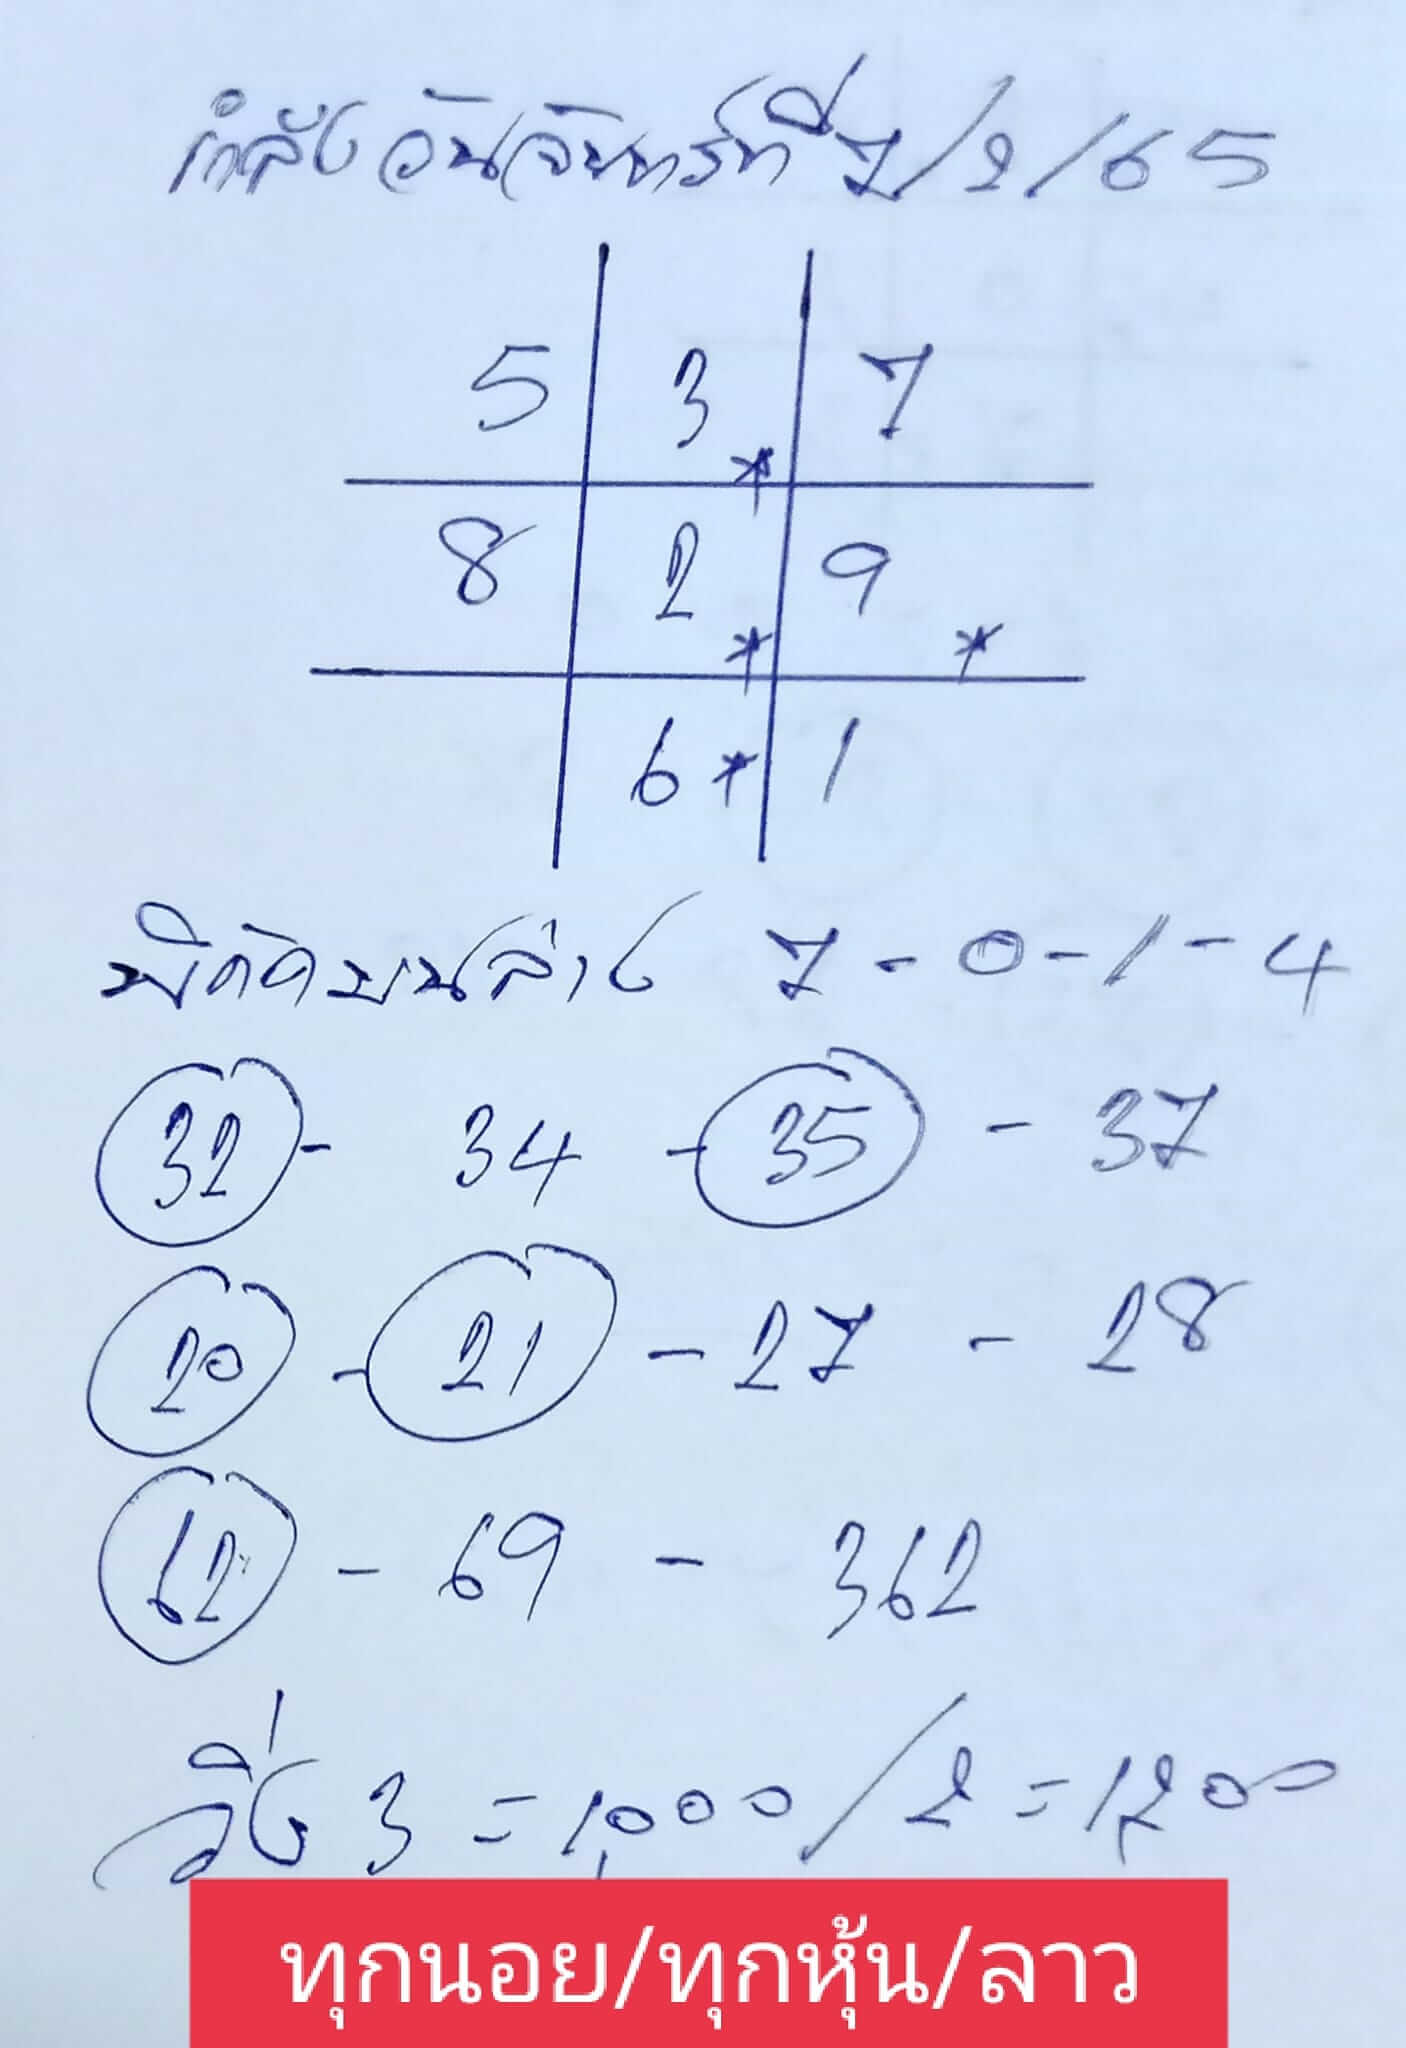 กำลังวันจันทร์ที่ 7/2/65
5 3 7
8 2 9
6 1
พิกัดบนล่าง 7-0-1-4
32 - 34 - 35 - 37
20 - 21 - 27 - 28
62 - 69 - 362
วิ่ง 3 = 1,000/2 = 1,200
ทุกนอย/ทุกหุ้น/ลาว